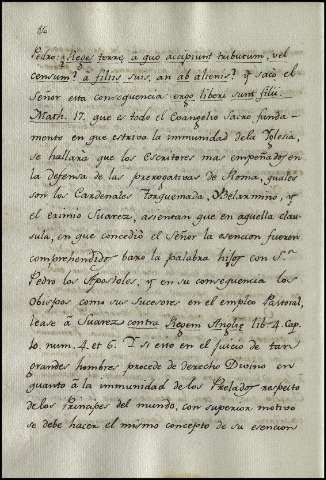 Pedro: Reges terre, â quo accipiunt tributum, vel
censum? â filiis suis, an ab alienis? y sacò el
Señor esta consequencia ergo liberi sunt filii:
Math. 17. que es todo el Evangelio Sacro funda-
mento en que estriva la immunidad dela Yglesia,
se hallarà que los escritores mas empeñados en
la defensa de las prerogativas de Roma, quales
son los Cardenales Torquemada, y Belarmino, y
el eximio Suarez, asientan que en aquella clau-
sula, en que concediò el Señor la esencion fueron
comprehendidos baxo la palabra hijos con Sn.
Pedro los Apostoles, y en su consequencia los
Obispos como sus Sucesores en el empleo Pastoral,
lease â Suarez contra Regem Anglię lib. 4. Cap.
10. num. 4. et 6. Y si esto en el juicio de tan
grandes hombres procede de derecho Divino en
quanto â la immunidad de los Prelados respeto
de los Principes del mundo, con superior motivo
se debe hacer el mismo concepto de su esencion